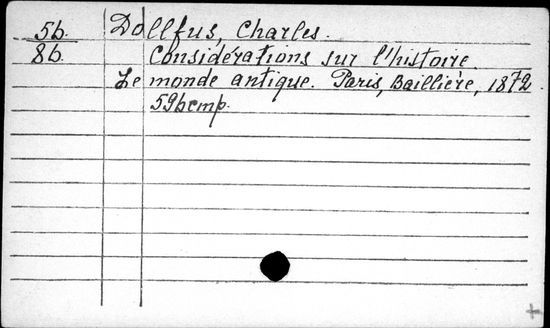 5б. Dollfus, Charles.
8б. Considérations sur l'histoire.
Le monde antique. Paris, Baillière, 1872.
596стр.